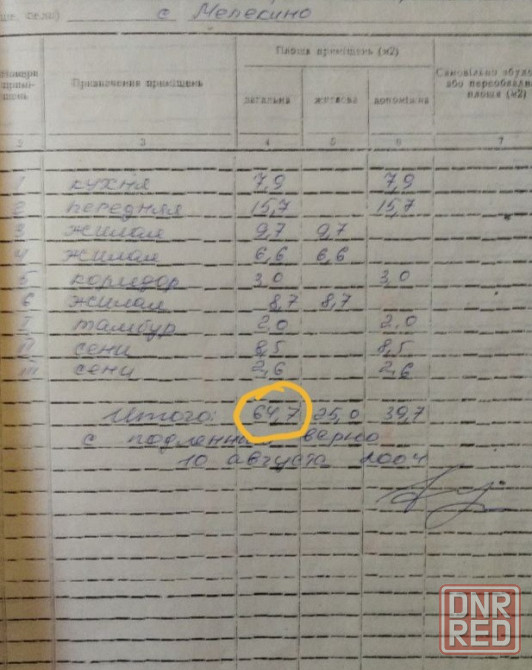 с Мелекино
Площа приміщень (м2)
Призначення приміщень
загальна житлова допоміжна
Самовільно збудо
або переобладна
площа (м2)
2 3 4 5 6 7
1 кухня 7,9 7,9
2 передняя 15,7 15,7
3 жилая 9,7 9,7
4 жилая 6,6 6,6
5 коридор 3,0 3,0
6 жилая 8,7 8,7
I тамбур 2,0 2,0
II сени 8,5 8,5
III сени 2,6 2,6
Итого: 64,7 25,0 39,7
с подленным верно
10 августа 2004
DNR
RED